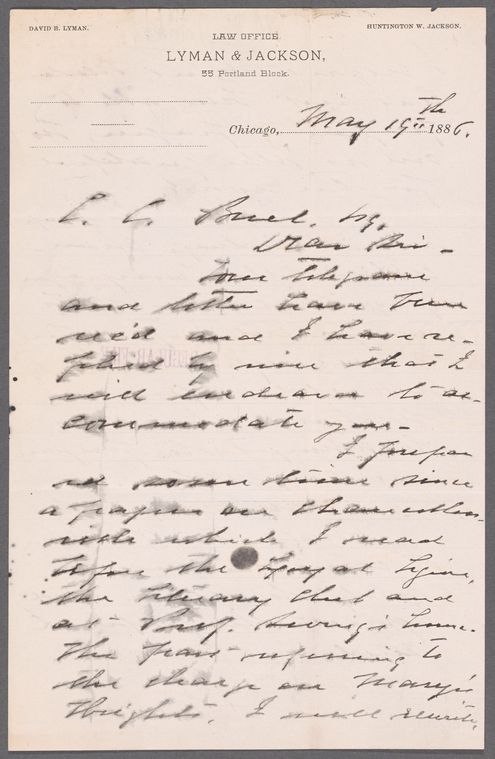 DAVID B. LYMAN.
HUNTINGTON W. JACKSON.
LAW OFFICE.
LYMAN & JACKSON,
55 Portland Block.
Chicago, May 19th 1886.
C. C. Buel, Esq.
Dear Sir—
Your telegram
and letter have been
rec'd and I have re-
plied by wire that I
will endeavor to ac-
commodate you—
I prepar
ed some time since
a paper on Chancellors-
ville which I read
before the Loyal Legion,
the literary club and
at Prof. Swing's home.
The part referring to
the charge on Mary's
Heights, I will rewrite,